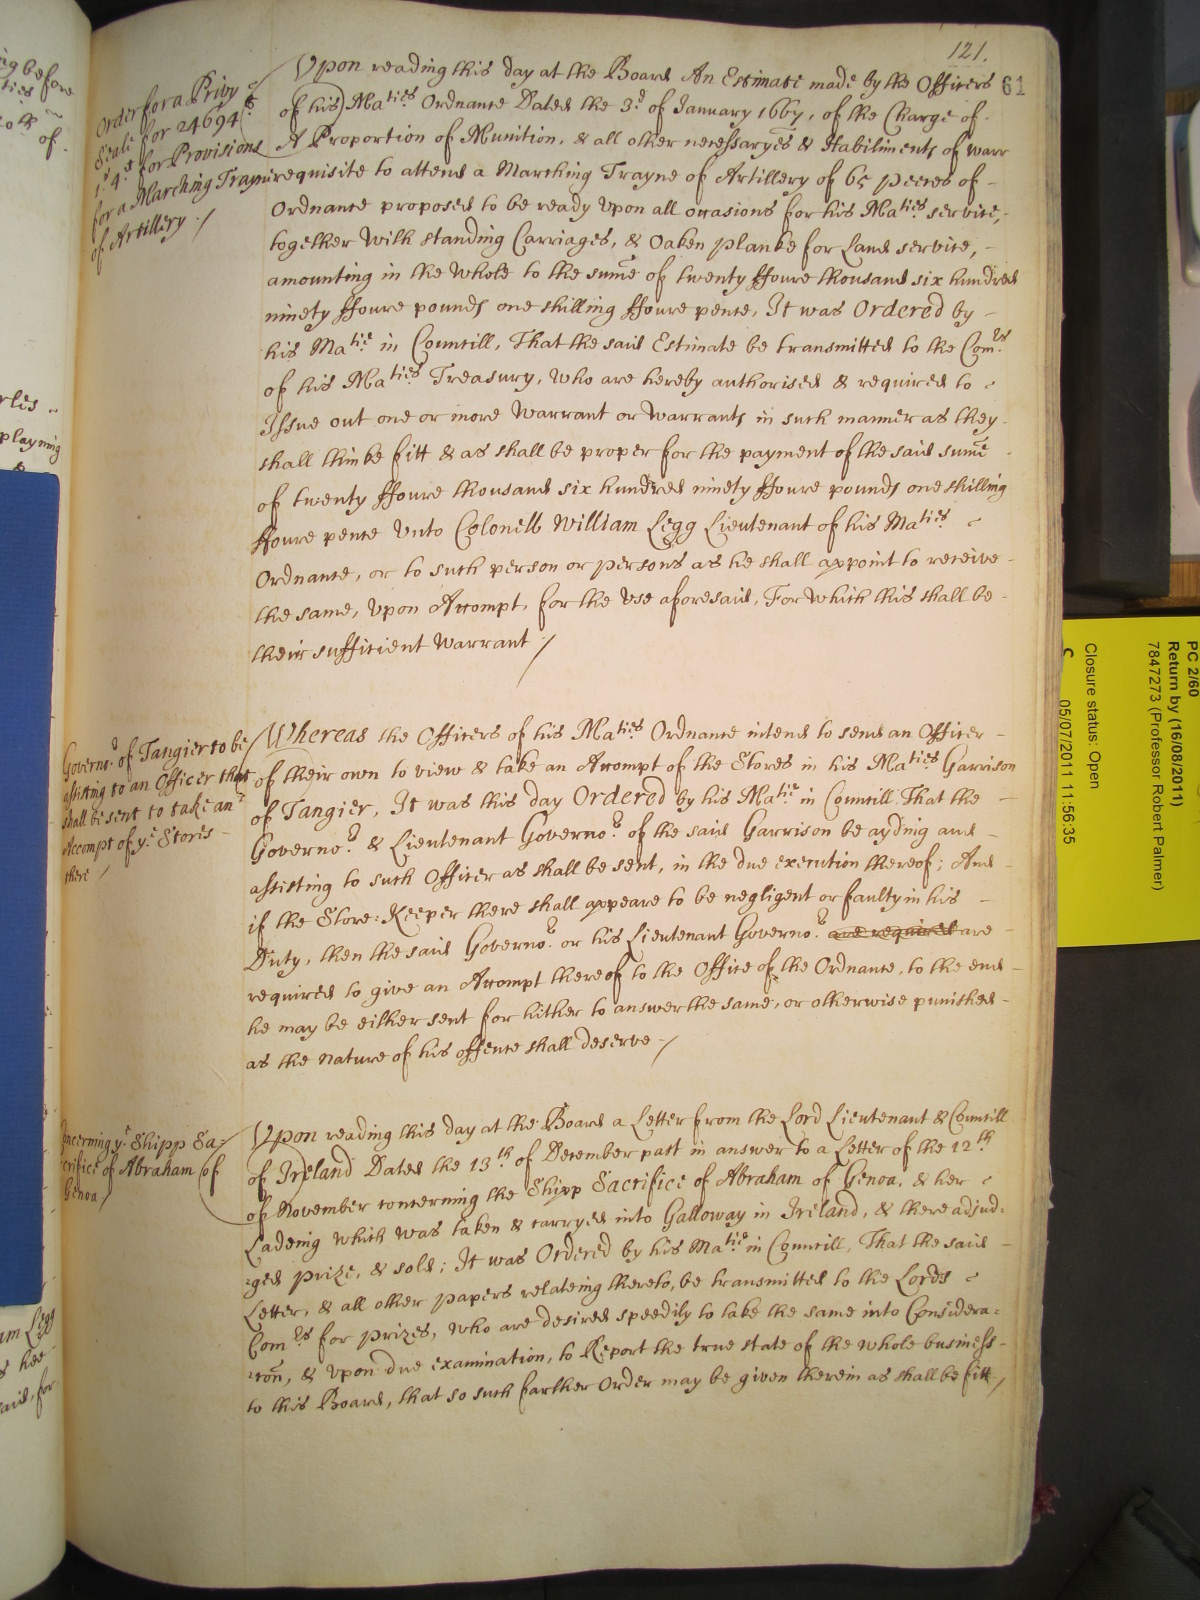 121.
61
Order for a Privy
Seale for 24694£
1s 4d for Provisions
for a Marching Trayne
of Artillery
Upon reading this day at the Board An Estimate made by the Officers
of his Maties Ordnance Dated the 3d of January 1667, of the Charge of
A Proportion of Munition, & all other necessaryes & Habiliments of warr
requisite to attend a Marching Trayne of Artillery of 65 peeces of
Ordnance proposed to be ready upon all occasions for his Maties service,
together with standing Carriages, & Oaken planke for Land service,
amounting in the whole to the sume of twenty ffoure thousand six hundred
ninety ffoure pounds one shilling ffoure pence, It was Ordered by
his Matie in Councill, That the said Estimate be transmitted to the Comrs
of his Maties Treasury, who are hereby authorised & required to
Issue out one or more warrant or warrants in such manner as they
shall thinke fitt & as shall be proper for the payment of the said sume
of twenty ffoure thousand six hundred ninety ffoure pounds one shilling
ffoure pence unto Colonell William Legg Lieutenant of his Maties
Ordnance, or to such person or persons as he shall appoint to receive
the same, upon Accompt, for the use aforesaid, For which this shall be
their sufficient warrant
Governor of Tangier to be
assisting to an Officer that
shall be sent to take an
Accompt of ye Stores
there
Whereas the Officers of his Maties Ordnance intend to send an Officer
of their own to view & take an Accompt of the Stores in his Maties Garrison
of Tangier, It was this day Ordered by his Matie in Councill, That the
Governor & Lieutenant Governor of the said Garrison be ayding and
assisting to such Officer as shall be sent, in the due execution thereof; And
if the Store-Keeper there shall appeare to be negligent or faulty in his
Duty, then the said Governor or his Lieutenant Governor and required are
required to give an Accompt thereof to the Office of the Ordnance, to the end
he may be either sent for hither to answer the same, or otherwise punished
as the nature of his offence shall deserve
Concerning ye Shipp Sa-
crifice of Abraham of
Genoa
Upon reading this day at the Board a Letter from the Lord Lieutenant & Councill
of Ireland Dated the 13th of December past in answer to a Letter of the 12th
of November concerning the Shipp Sacrifice of Abraham of Genoa, & her
Ladeing which was taken & carryed into Galloway in Ireland, & there adjud:
:ged prize, & sold; It was Ordered by his Matie in Councill, That the said
Letter, & all other papers relateing thereto, be transmitted to the Lords
Comrs for prizes, who are desired speedily to take the same into Considera:
:con, & upon due examination, to Report the true state of the whole business
to this Board, that so such farther Order may be given therein as shall be fitt
PC 2/60
Return by (16/08/2011)
7847273 (Professor Robert Palmer)
Closure status: Open
C 05/07/2011 11:56:35